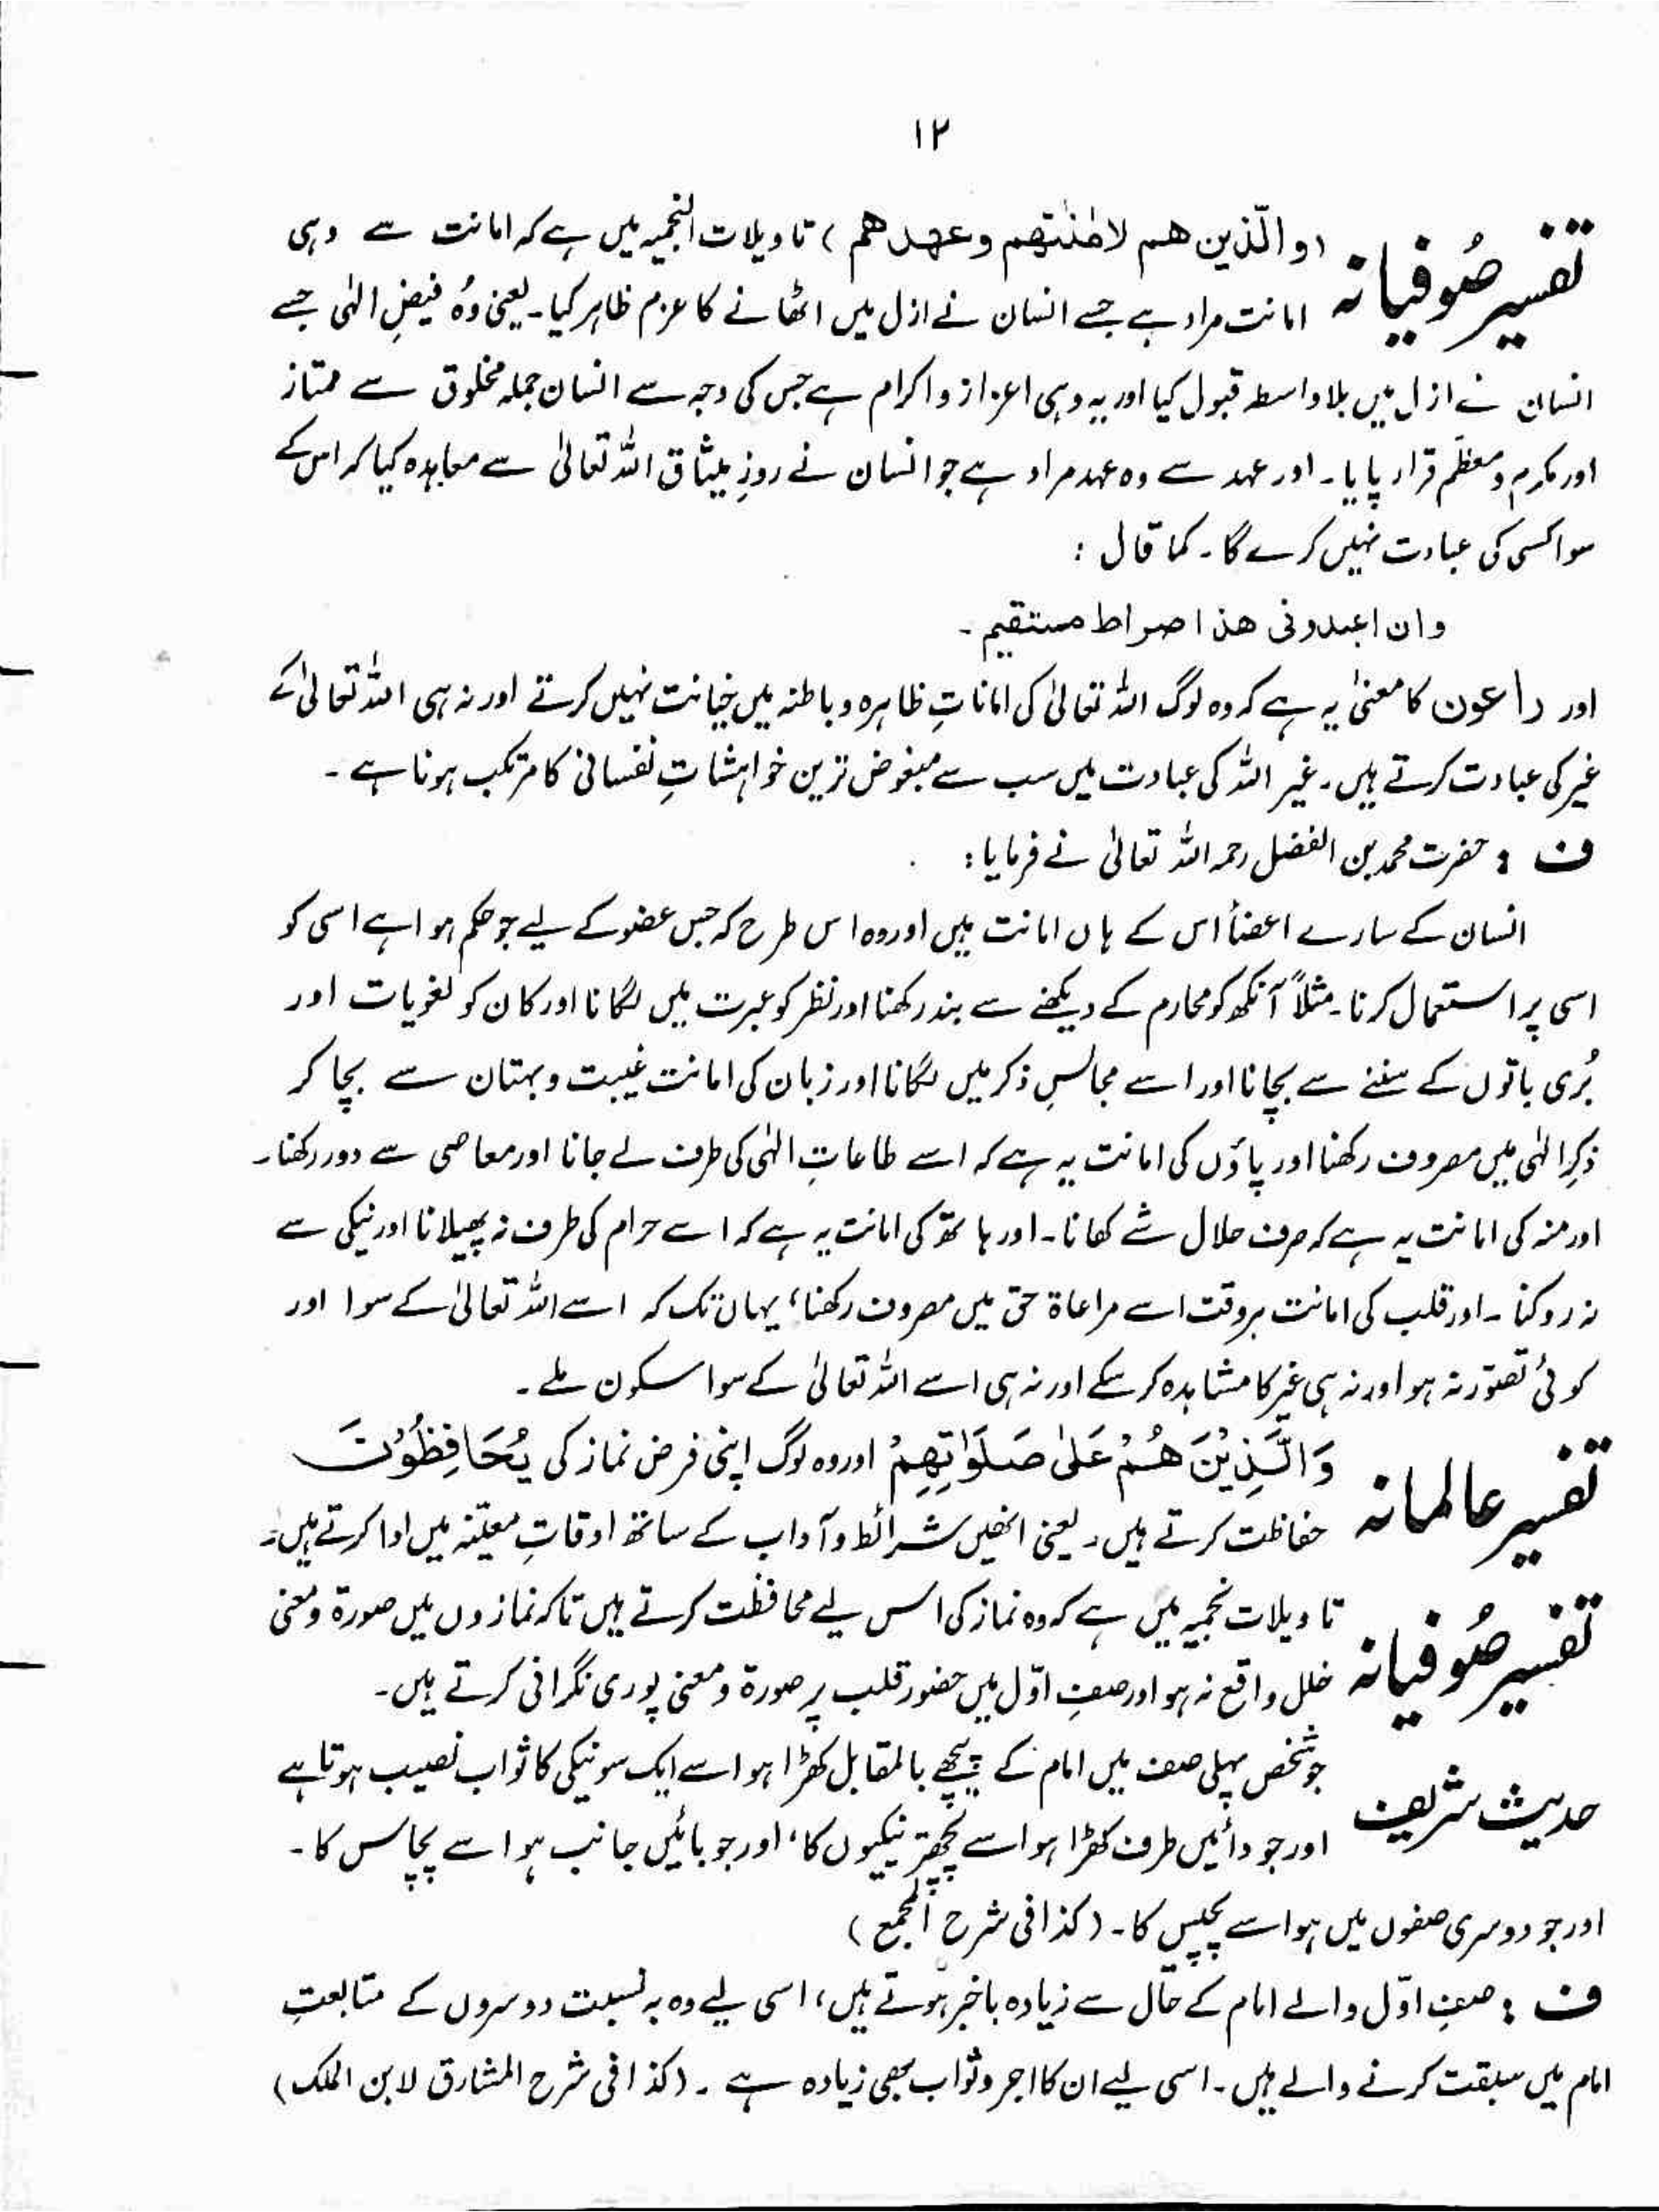 ۱۲
تفسیر صُوفیانہ (والّذین هم لامٰنٰتهم وعهدهم) تاویلات النجمیہ میں ہے کہ امانت سے وہی
امانت مراد ہے جسے انسان نے ازل میں اٹھانے کا عزم ظاہر کیا۔ یعنی وُہ فیضِ الٰہی جسے
انسان نے ازل میں بلاواسطہ قبول کیا اور یہ وہی اعزاز و اکرام ہے جس کی وجہ سے انسان جملہ مخلوق سے ممتاز
اور مکرم و معظّم قرار پایا۔ اور عہد سے وہ عہد مراد ہے جو انسان نے روزِ میثاق اللہ تعالیٰ سے معاہدہ کیا کہ اس کے
سوا کسی کی عبادت نہیں کرے گا۔ کما قال :
وان اعبدونی هذا صراط مستقیم۔
اور راعون کا معنیٰ یہ ہے کہ وہ لوگ اللہ تعالیٰ کی اماناتِ ظاہرہ و باطنہ میں خیانت نہیں کرتے اور نہ ہی اللہ تعالیٰ کے
غیر کی عبادت کرتے ہیں۔ غیر اللہ کی عبادت میں سب سے مبغوض ترین خواہشاتِ نفسانی کا مرتکب ہونا ہے۔
ف : حضرت محمد بن الفضل رحمہ اللہ تعالیٰ نے فرمایا :
انسان کے سارے اعضأ اس کے ہاں امانت ہیں اور وہ اس طرح کہ جس عضو کے لیے جو حکم ہوا ہے اسی کو
اسی پر استعمال کرنا۔ مثلاً آنکھ کو محارم کے دیکھنے سے بند رکھنا اور نظر کو عبرت میں لگانا اور کان کو لغویات اور
بُری باتوں کے سننے سے بچانا اور اسے مجالسِ ذکر میں لگانا اور زبان کی امانت غیبت و بہتان سے بچا کر
ذکرِ الٰہی میں مصروف رکھنا اور پاؤں کی امانت یہ ہے کہ اسے طاعاتِ الٰہی کی طرف لے جانا اور معاصی سے دور رکھنا۔
اور منہ کی امانت یہ ہے کہ صرف حلال شے کھانا۔ اور ہاتھ کی امانت یہ ہے کہ اسے حرام کی طرف نہ پھیلانا اور نیکی سے
نہ روکنا۔ اور قلب کی امانت ہر وقت اسے مراعاۃ حق میں مصروف رکھنا، یہاں تک کہ اسے اللہ تعالیٰ کے سوا اور
کوئی تصوّر نہ ہو اور نہ ہی غیر کا مشاہدہ کر سکے اور نہ ہی اسے اللہ تعالیٰ کے سوا سکون ملے۔
تفسیر عالمانہ وَالَّذِیْنَ هُمْ عَلیٰ صَلَوٰتِهِمْ اور وہ لوگ اپنی فرض نماز کی یُحَافِظُوْنَ
حفاظت کرتے ہیں۔ یعنی انھیں شرائط و آداب کے ساتھ اوقاتِ معیّنہ میں ادا کرتے ہیں۔
تفسیر صُوفیانہ تاویلات نجمیہ میں ہے کہ وہ نماز کی اس لیے محافظت کرتے ہیں تاکہ نمازوں میں صورۃ و معنی
خلل واقع نہ ہو اور صفِ اوّل میں حضور قلب پر صورۃ و معنی پوری نگرانی کرتے ہیں۔
حدیث شریف جو شخص پہلی صف میں امام کے پیچھے بالمقابل کھڑا ہو اسے ایک سو نیکی کا ثواب نصیب ہوتا ہے
اور جو دائیں طرف کھڑا ہو اسے پچھتر نیکیوں کا، اور جو بائیں جانب ہو اسے پچاس کا۔
اور جو دوسری صفوں میں ہو اسے پچیس کا۔ (کذا فی شرح المجمع)
ف : صفِ اوّل والے امام کے حال سے زیادہ باخبر ہوتے ہیں، اسی لیے وہ بہ نسبت دوسروں کے متابعتِ
امام میں سبقت کرنے والے ہیں۔ اسی لیے ان کا اجر و ثواب بھی زیادہ ہے۔ (کذا فی شرح المشارق لابن الملک)